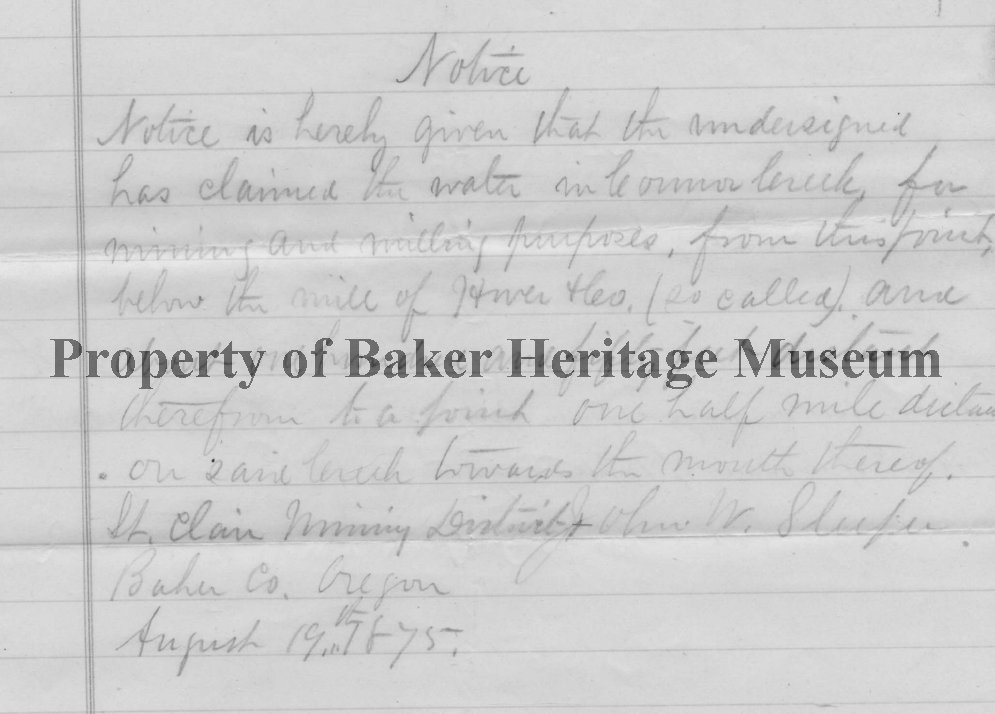 Notice
Notice is hereby given that the undersigned
has claimed the water in Connor Creek, for
mining and milling purposes, from this point,
below the mill of & Co. (so called). and
Property of Baker Heritage Museum
therefrom to a point one half mile distan
on said Creek towards the mouth thereof.
St. Clair Mining District John W. Sleeper.
Baker Co. Oregon
August 19th 1875.